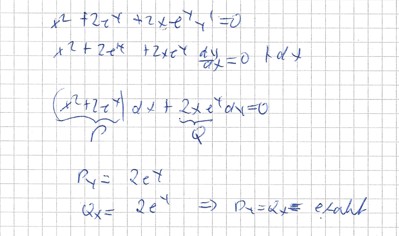 x² + 2e^y + 2xe^y y' = 0
x² + 2e^y + 2xe^y dy/dx = 0 | · dx
(x² + 2e^y) dx + 2xe^y dy = 0
P Q
P_y = 2e^y
Q_x = 2e^y ⇒ P_y = Q_x = exakt